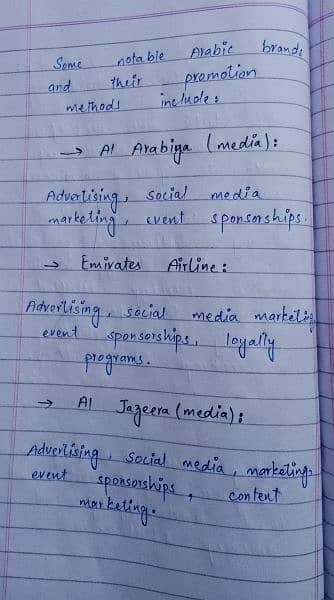 Some notable Arabic brands
and their promotion
methods include:
→ Al Arabiya (media):
Advertising, social media
marketing, event sponsorships.
→ Emirates Airline:
Advertising, social media marketing
event sponsorships, loyally
programs.
→ Al Jazeera (media):
Advertising, social media, marketing,
event sponsorships, content
marketing.